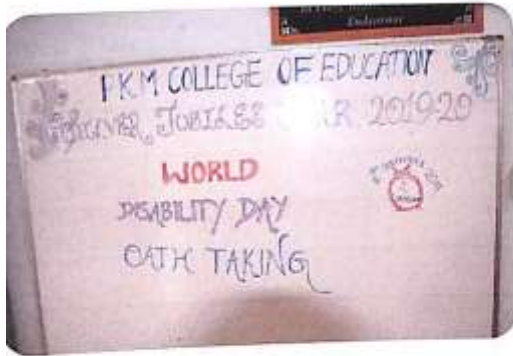 PKM COLLEGE OF EDUCATION
SILVER JUBILEE YEAR 2019-20
WORLD
DISABILITY DAY
OATH TAKING